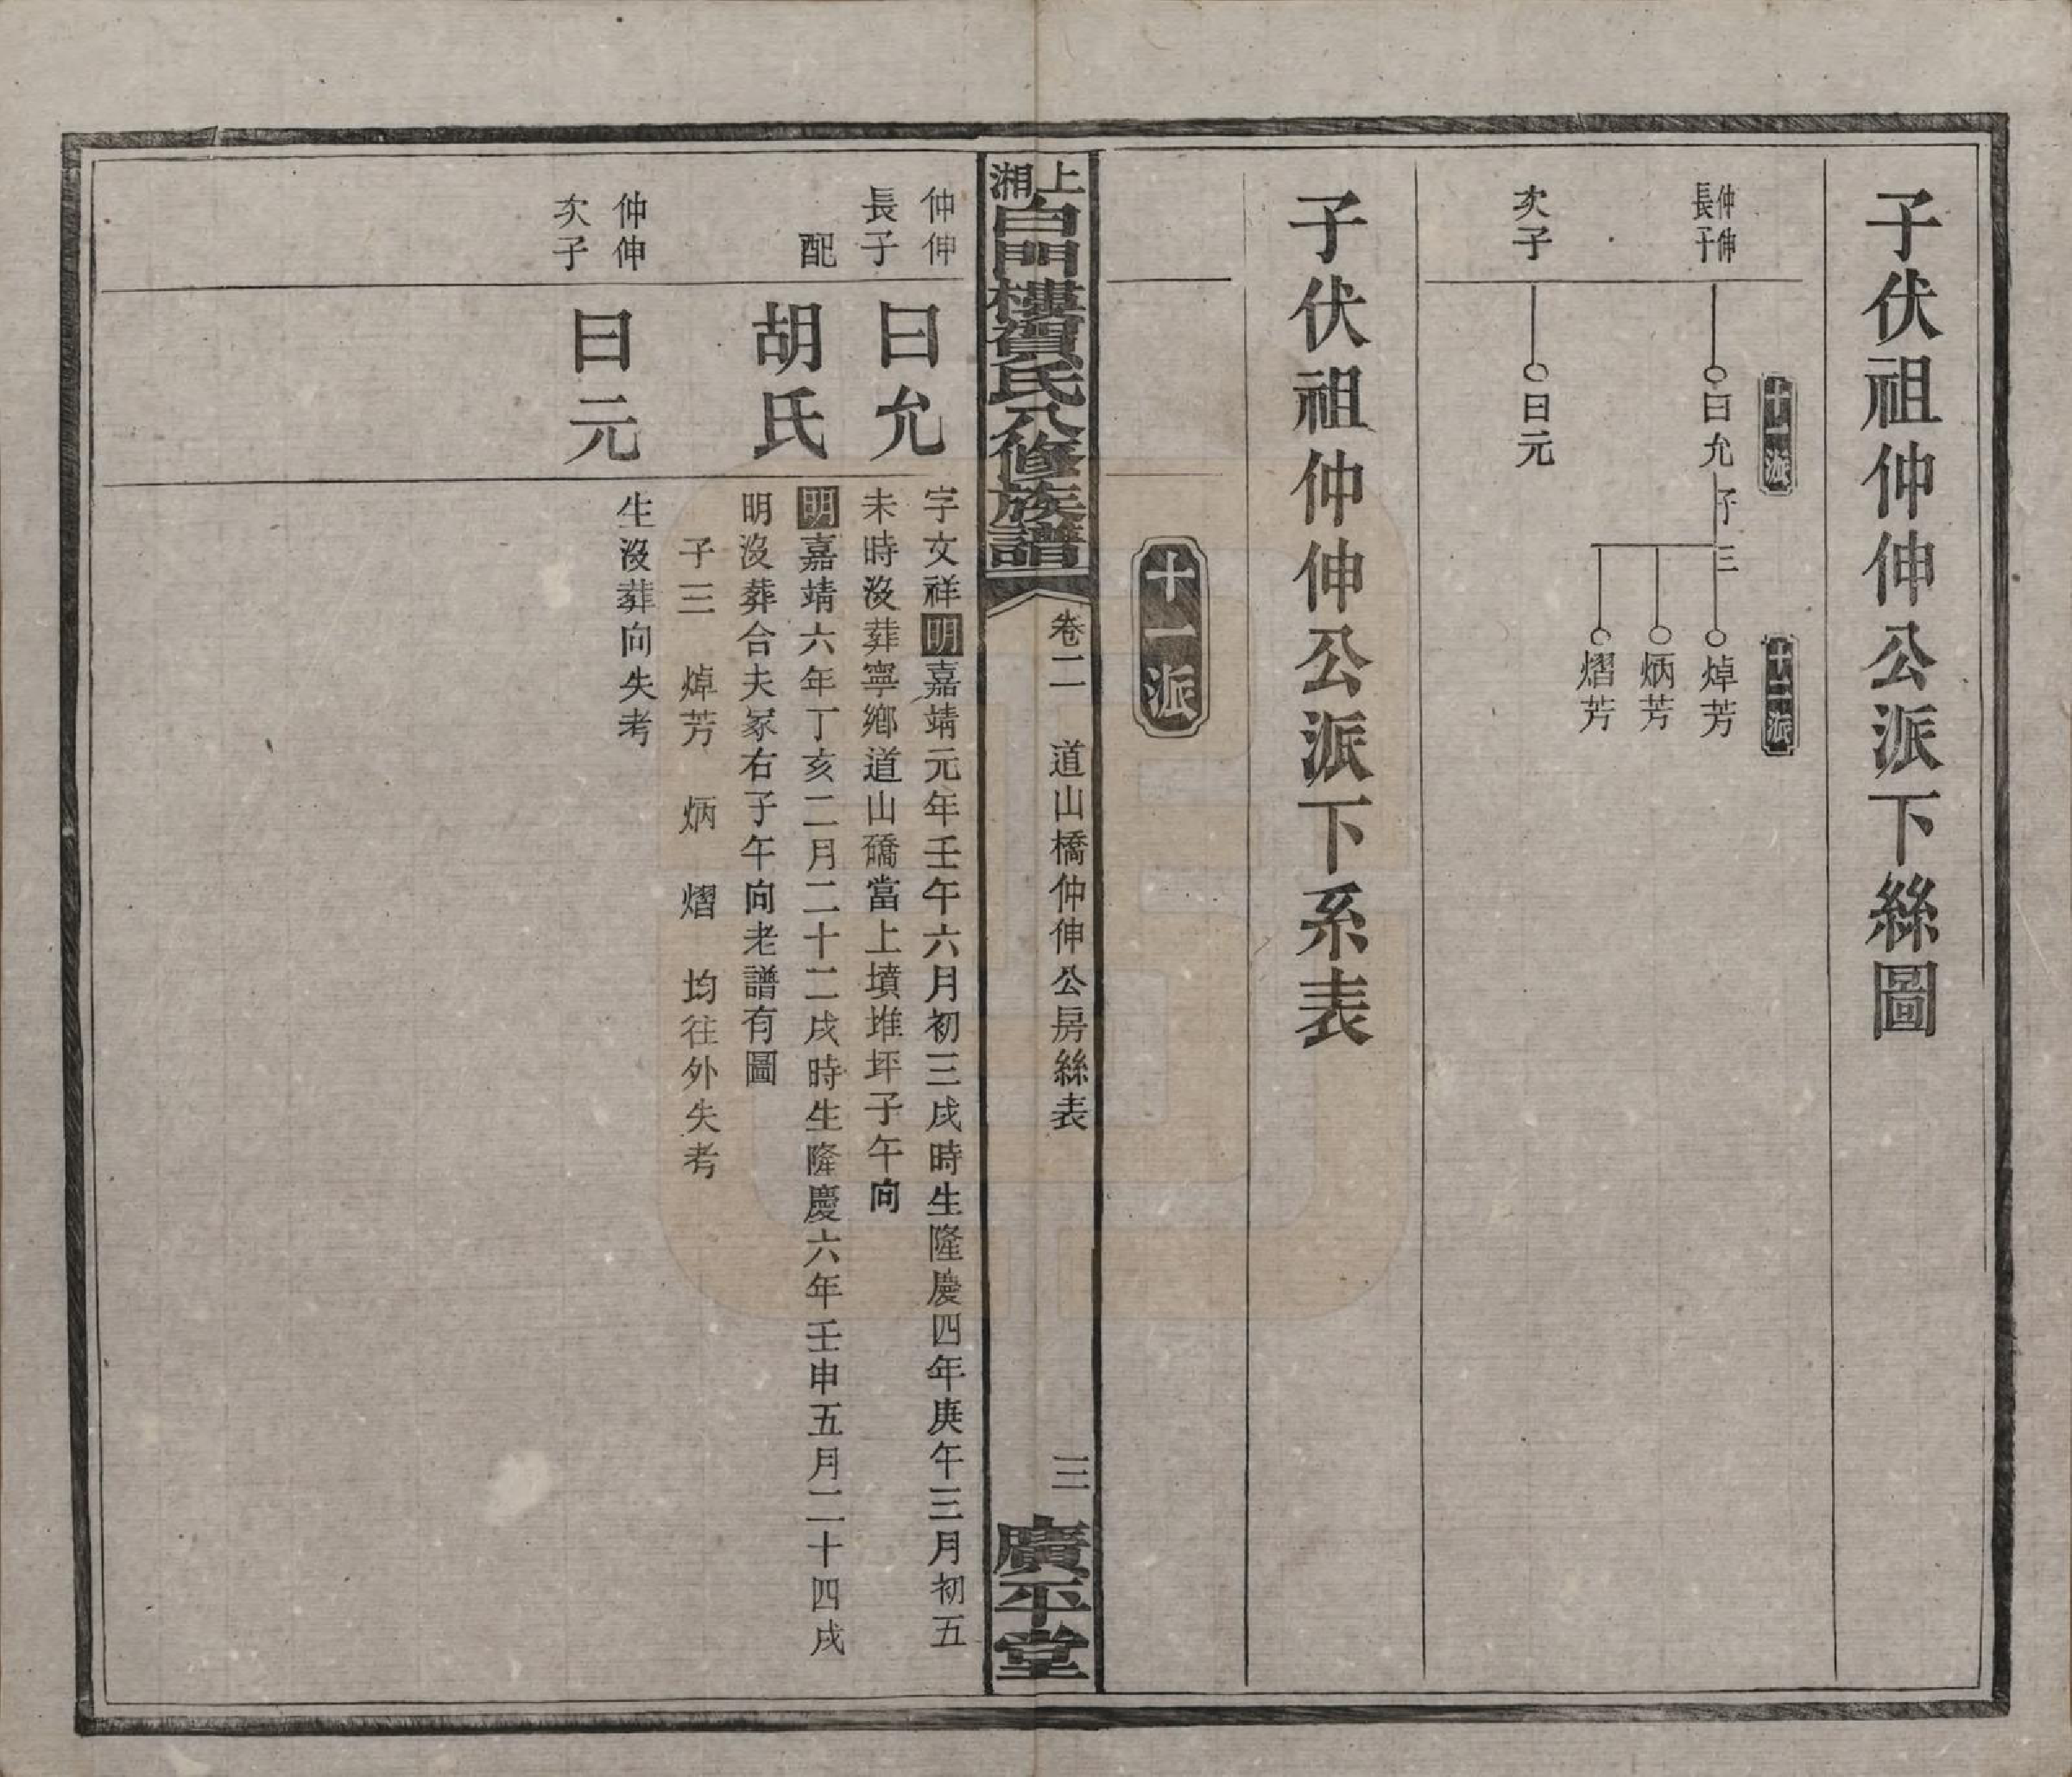 子伏祖仲伸公派下絲圖
十一派
十二派
仲伸
長子
曰允
子三
焯芳
炳芳
熠芳
次子
曰元
子伏祖仲伸公派下系表
十一派
上湘白門樓賀氏八修族譜
卷二 道山橋仲伸公房絲表
三
廣平堂
仲伸
長子
曰允
字文祥明嘉靖元年壬午六月初三戌時生隆慶四年庚午三月初五
未時沒葬寧鄉道山礄當上墳堆坪子午向
配
胡氏
明嘉靖六年丁亥二月二十二戌時生隆慶六年壬申五月二十四戌
明沒葬合夫冢右子午向老譜有圖
子三 焯芳 炳 熠 均往外失考
仲伸
次子
曰元
生沒葬向失考